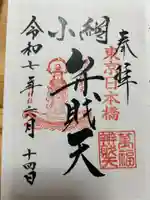 奉拝
東京日本橋
小網
弁財天
萬福舟乘弁財天
令和七年六月十四日